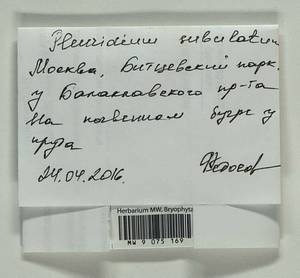 Pleuridium subulatum
Москва, Битцевский парк.
у Балаклавского пр-та
На почвенном бугре у
пруда
24.04.2016.
Herbarium MW, Bryophyta
MW 9 075 169